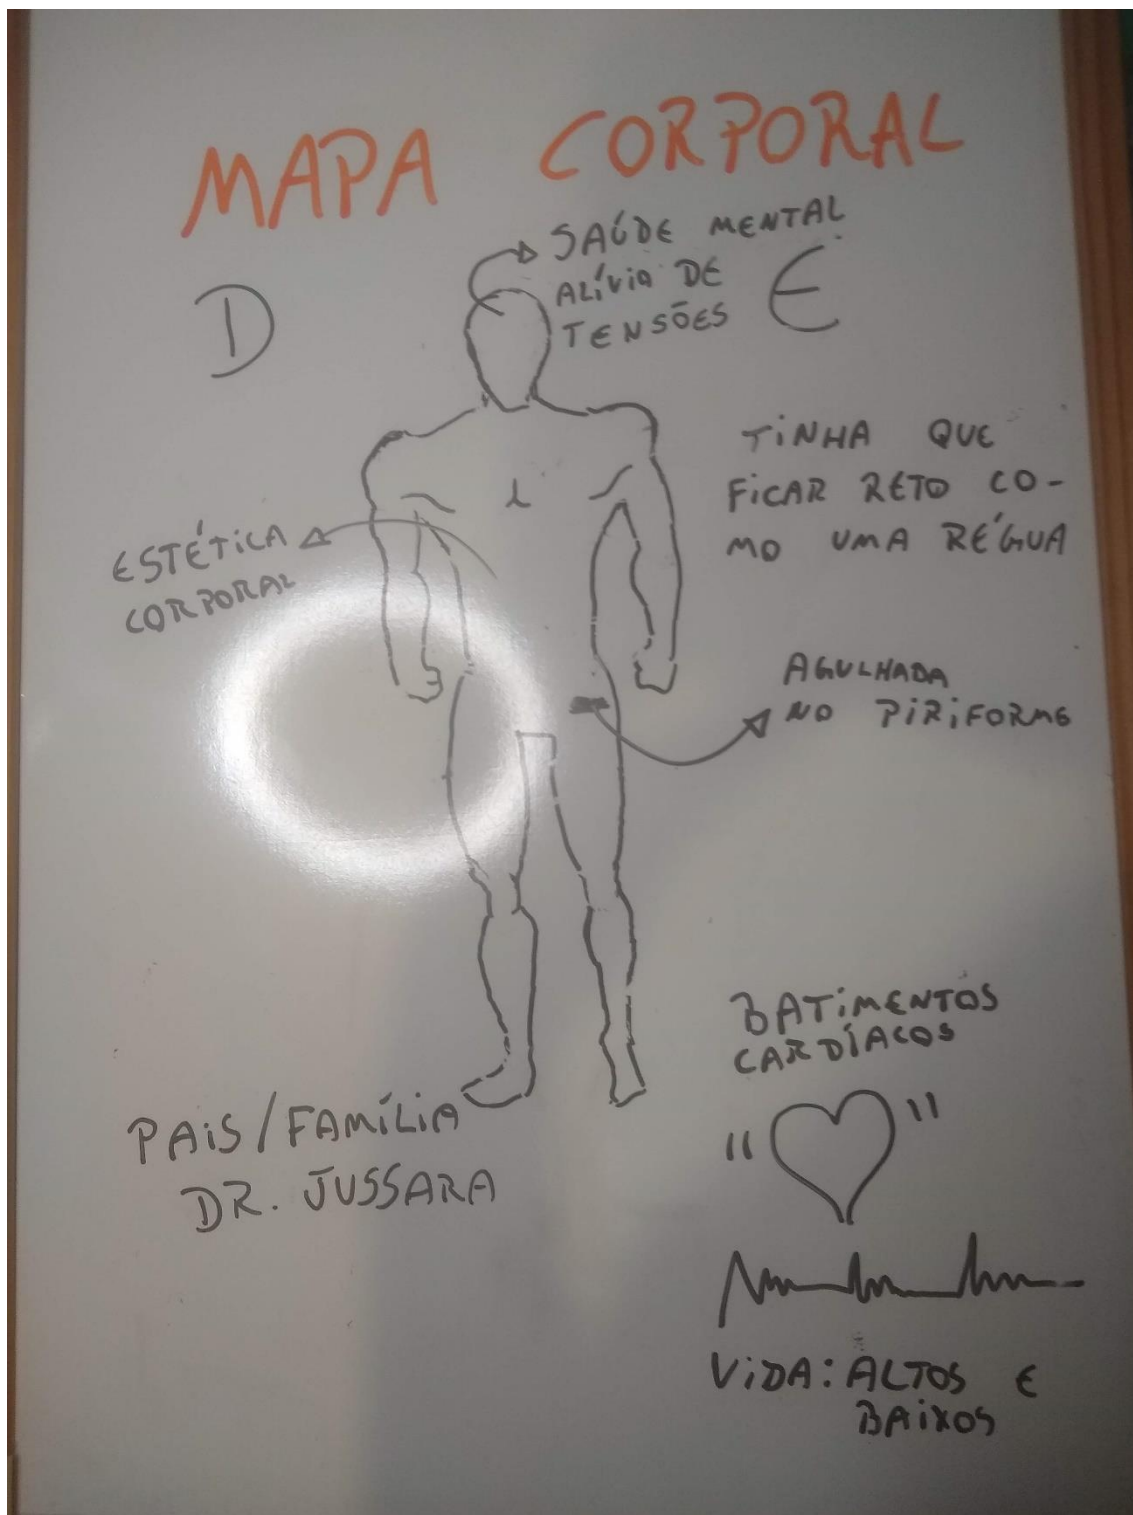 MAPA CORPORAL
D
SAÚDE MENTAL
ALÍVIO DE
TENSÕES
E
TINHA QUE
FICAR RETO CO-
MO UMA RÉGUA
ESTÉTICA
CORPORAL
AGULHADA
NO PIRIFORME
BATIMENTOS
CARDÍACOS
" "
PAIS/FAMÍLIA
DR. JUSSARA
VIDA: ALTOS E
BAIXOS